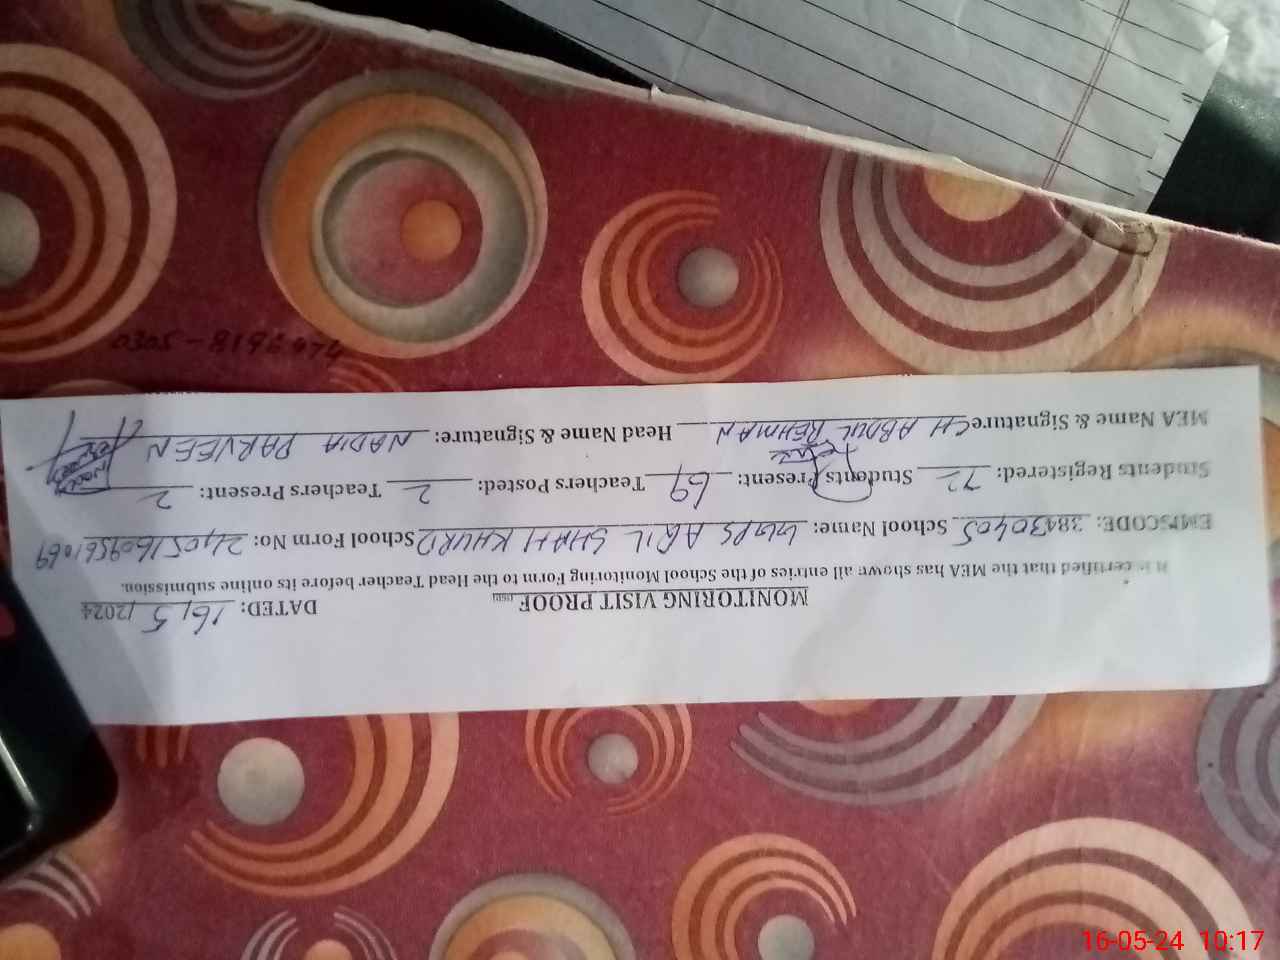 MONITORING VISIT PROOF DATED: 16/5/2024
It is certified that the MEA has shown all entries of the School Monitoring Form to the Head Teacher before its online submission.
EMISCODE: 38430405 School Name: GGPS ADIL SHAH KHURD School Form No: 24051609561069
Students Registered: 72 Students Present: 69 Teachers Posted: 2 Teachers Present: 2
MEA Name & Signature CH ABDUL REHMAN Head Name & Signature: NADIA PARVEEN
16-05-24 10:17